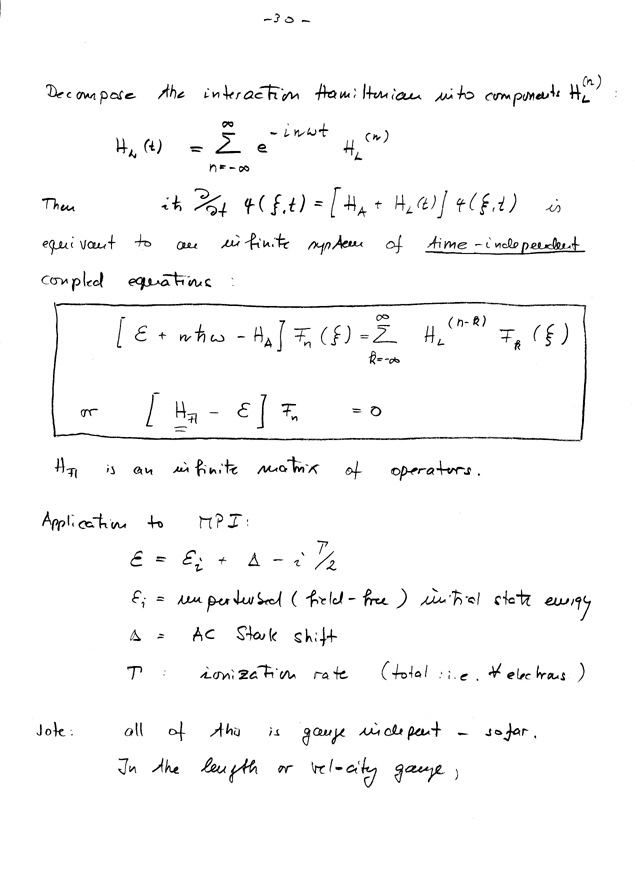 -30-
Decompose the interaction Hamiltonian into components H_L^(n) :
H_L (t) = ∑_{n=-∞}^{∞} e^{-inωt} H_L^(n)
Then iħ ∂/∂t Ψ(ξ,t) = [ H_A + H_L(t) ] Ψ(ξ,t) is
equivant to an infinite system of time-independent
coupled equations :
[ ε + nħω - H_A ] F_n (ξ) = ∑_{k=-∞}^{∞} H_L^(n-k) F_k (ξ)
or [ H_Fl - ε ] F_n = 0
H_Fl is an infinite matrix of operators.
Application to MPI:
ε = ε_i + Δ - i Γ/2
ε_i = unperturbed (field-free) initial state energy
Δ = AC Stark shift
Γ : ionization rate (total : i.e. # electrons)
Note: all of this is gauge indepent - so far.
In the length or vel-city gauge,